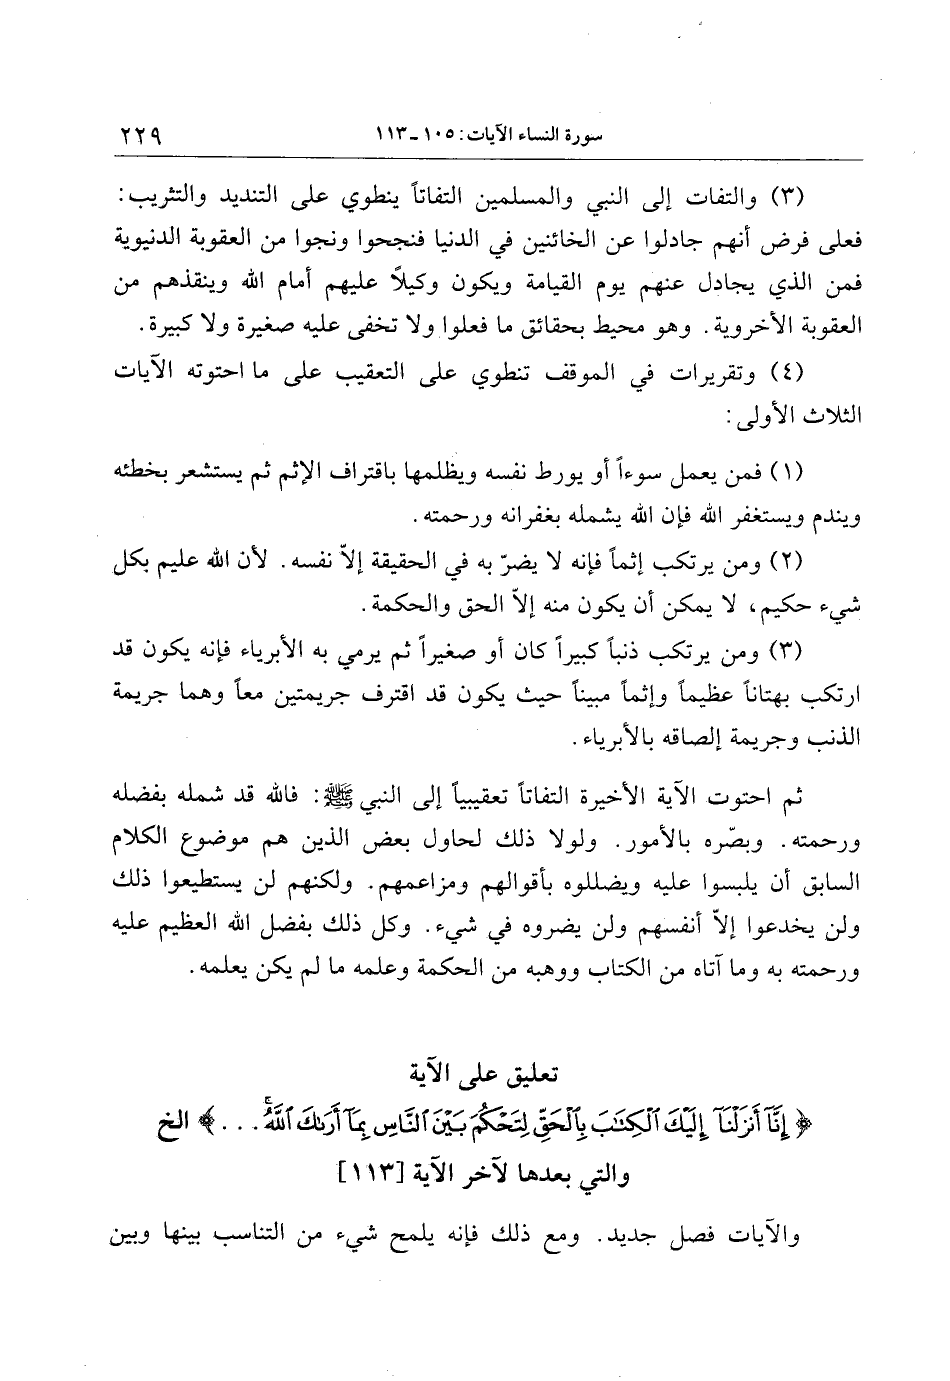 سورة النساء الآيات: ١٠٥ـ١١٣ ٢٢٩
(٣) والتفات إلى النبي والمسلمين التفاتاً ينطوي على التنديد والتثريب:
فعلى فرض أنهم جادلوا عن الخائنين في الدنيا فنجحوا ونجوا من العقوبة الدنيوية
فمن الذي يجادل عنهم يوم القيامة ويكون وكيلاً عليهم أمام الله وينقذهم من
العقوبة الأخروية. وهو محيط بحقائق ما فعلوا ولا تخفى عليه صغيرة ولا كبيرة.
(٤) وتقريرات في الموقف تنطوي على التعقيب على ما احتوته الآيات
الثلاث الأولى:
(١) فمن يعمل سوءاً أو يورط نفسه ويظلمها باقتراف الإثم ثم يستشعر بخطئه
ويندم ويستغفر الله فإن الله يشمله بغفرانه ورحمته.
(٢) ومن يرتكب إثماً فإنه لا يضرّ به في الحقيقة إلاّ نفسه. لأن الله عليم بكل
شيء حكيم، لا يمكن أن يكون منه إلاّ الحق والحكمة.
(٣) ومن يرتكب ذنباً كبيراً كان أو صغيراً ثم يرمي به الأبرياء فإنه يكون قد
ارتكب بهتاناً عظيماً وإثماً مبيناً حيث يكون قد اقترف جريمتين معاً وهما جريمة
الذنب وجريمة إلصاقه بالأبرياء.
ثم احتوت الآية الأخيرة التفاتاً تعقيبياً إلى النبي ﷺ: فالله قد شمله بفضله
ورحمته. وبصّره بالأمور. ولولا ذلك لحاول بعض الذين هم موضوع الكلام
السابق أن يلبسوا عليه ويضللوه بأقوالهم ومزاعمهم. ولكنهم لن يستطيعوا ذلك
ولن يخدعوا إلاّ أنفسهم ولن يضروه في شيء. وكل ذلك بفضل الله العظيم عليه
ورحمته به وما آتاه من الكتاب ووهبه من الحكمة وعلمه ما لم يكن يعلمه.
تعليق على الآية
﴿إِنَّآ أَنزَلْنَآ إِلَيْكَ ٱلْكِتَٰبَ بِٱلْحَقِّ لِتَحْكُمَ بَيْنَ ٱلنَّاسِ بِمَآ أَرَىٰكَ ٱللَّهُۚ . . .﴾ الخ
والتي بعدها لآخر الآية [١١٣]
والآيات فصل جديد. ومع ذلك فإنه يلمح شيء من التناسب بينها وبين